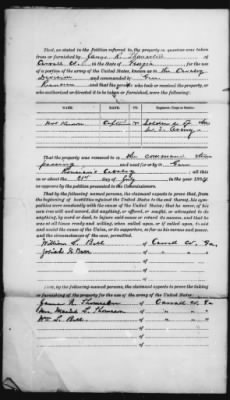 That, as stated in the Petition referred to, the property in question was taken
from or furnished by James R. Thomason of
Carroll Co. in the State of Georgia for the use
of a portion of the army of the United States, known as the Cavalry
Division and commanded by Gen
and that the persons who took or receive the property, or
who authorized or directed it to be taken or furnished, were the following:
NAME. RANK.
Not Known Captain & Soldiers of the
U. S. Army
That the property was removed to the command then
passing and used for or by Gen
Cavalry all this
on or about the 21st day of July in the year 186
as appears by the petition presented to the Commissioners.
That by the following-named persons, the claimant expects to prove that, from the
beginning of hostilities against the United States to the end thereof, his sympathies
were constantly with the cause of the United States; that he never, of his
own free will and accord, did anything, or offered, or sought, or attempted to do
anything, by word or deed, to injure said cause or retard its success, and that he
was at all times ready and willing, when called upon, or if called upon, to aid
and assist the cause of the Union, or its supporters, so far as his means and power,
and the circumstances of the case, permitted.
William L. Bell of Carroll Co, Ga,
Josiah G. of " "
of
of
of
of
And, by the following-named persons, the claimant expects to prove the taking
or furnishing of the property for the use of the army of the United States:
James R. Thomason of Carroll Co, Ga
Mrs of " "
Wm L. Bell of " "
of
of